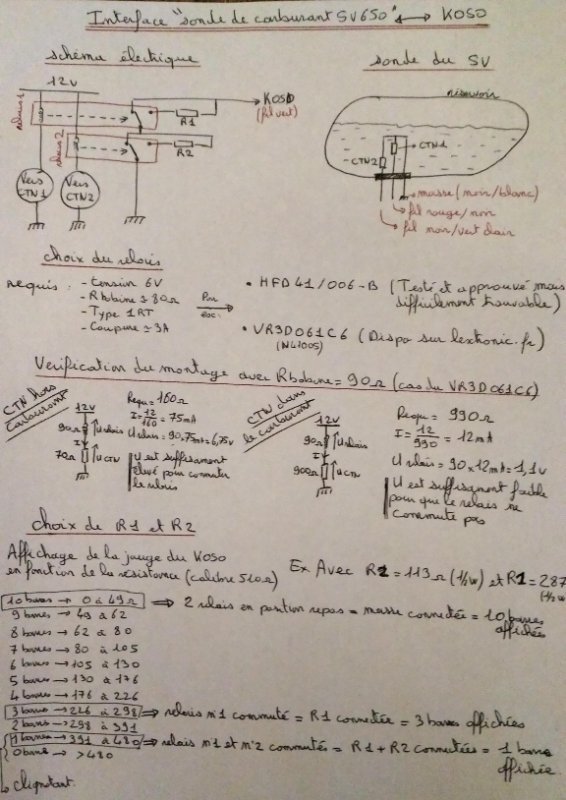 Interface "sonde de carburant SV650" ↔ KOSO
schéma électrique
12V
relais 1
relais 2
KOSO
(fil vert)
R1
R2
Vers CTN1
Vers CTN2
sonde du SV
réservoir
CTN1
CTN2
masse (noir/blanc)
fil rouge/noir
fil noir/vert clair
choix du relais
requis : - tension 6V
- Rbobine ≃ 80Ω
- Type 1RT
- Coupure ≃ 3A
• HFD41/006-B (Testé et approuvé mais
difficilement trouvable)
• VR3D061C6 (Dispo sur lextronic.fr)
(N41005)
Vérification du montage avec Rbobine = 90Ω (cas du VR3D061C6)
CTN hors
carburant
12V
90Ω
U relais
I
70Ω
U CTN
Requ = 160Ω
I = 12/160 = 75mA
U relais = 90,75mA = 6,75V
U est suffisament
élevé pour commuter
le relais
CTN dans
le carburant
12V
90Ω
U relais
I
900Ω
U CTN
Requ = 990Ω
I = 12/990 = 12mA
U relais = 90 x 12mA = 1,1V
U est suffisament faible
pour que le relais ne
commute pas
choix de R1 et R2
Affichage de la jauge du KOSO
en fonction de la résistance (calibre 510Ω)
Ex Avec R2 = 113Ω (1/2W) et R1 = 287
(1/2W
10 barres → 0 à 49Ω ⇒ 2 relais en position repos = masse connectée = 10 barres
affichées
9 barres → 49 à 62
8 barres → 62 à 80
7 barres → 80 à 105
6 barres → 105 à 130
5 barres → 130 à 176
4 barres → 176 à 226
3 barres → 226 à 298 ⇒ relais n°1 commuté = R1 connectée = 3 barres affichées
2 barres → 298 à 391
1 barre → 391 à 480 ⇒ relais n°1 et n°2 commutés = R1 + R2 connectées = 1 barre
affichée
0 barre → >480
clignotant.